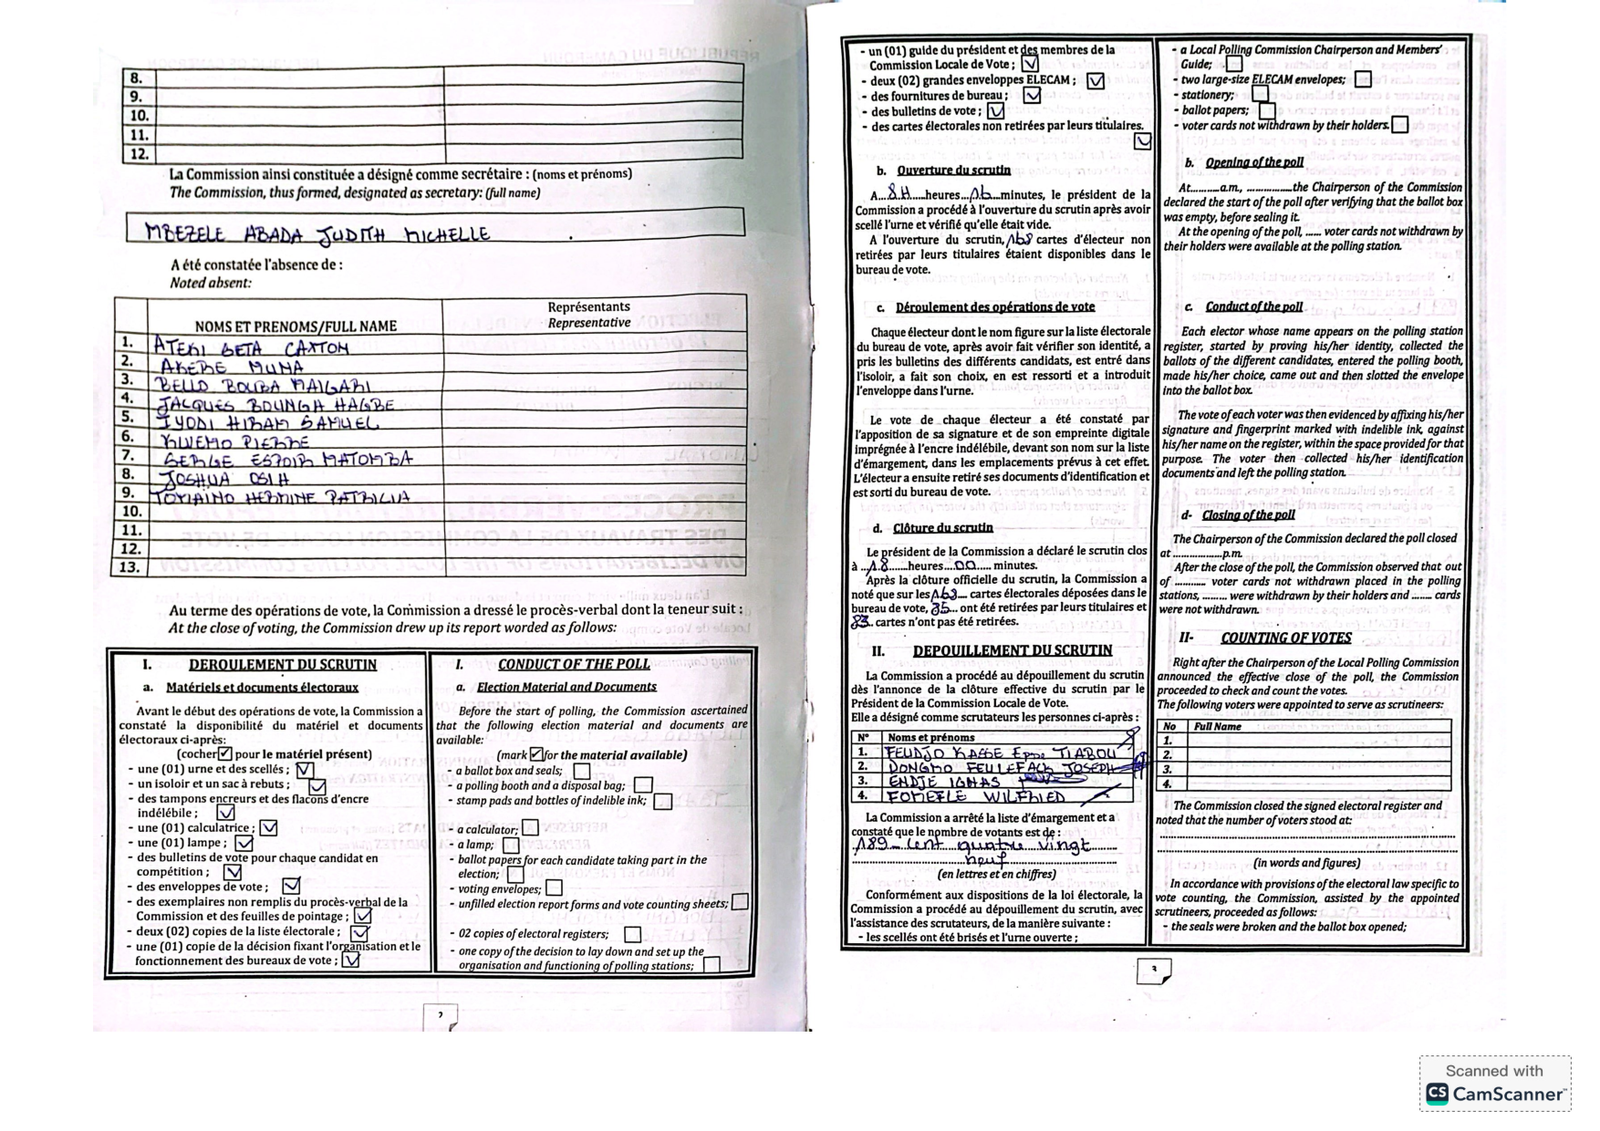 8.
9.
10.
11.
12.
La Commission ainsi constituée a désigné comme secrétaire : (noms et prénoms)
The Commission, thus formed, designated as secretary: (full name)
MBEZELE ABADA JUDITH MICHELLE
A été constatée l'absence de :
Noted absent:
NOMS ET PRENOMS/FULL NAME
Représentants
Representative
1. ATEKI SETA CAXTON
2. AKERE MUNA
3. BELLO BOUBA MAIGARI
4. JACQUES BOUNGH HAGBE
5. IYODI HIRAM SAMUEL
6. KWEMO PIERRE
7. SERGE ESPOIR MATOMBA
8. JOSHUA OSIH
9. TOMAINO HERMINE PATRICIA
10.
11.
12.
13.
Au terme des opérations de vote, la Commission a dressé le procès-verbal dont la teneur suit :
At the close of voting, the Commission drew up its report worded as follows:
I. DEROULEMENT DU SCRUTIN
a. Matériels et documents électoraux
Avant le début des opérations de vote, la Commission a
constaté la disponibilité du matériel et documents
électoraux ci-après:
(cocher☑ pour le matériel présent)
- une (01) urne et des scellés ; ☑
- un isoloir et un sac à rebuts ; ☑
- des tampons encreurs et des flacons d'encre
indélébile ; ☑
- une (01) calculatrice ; ☑
- une (01) lampe ; ☑
- des bulletins de vote pour chaque candidat en
compétition ; ☑
- des enveloppes de vote ; ☑
- des exemplaires non remplis du procès-verbal de la
Commission et des feuilles de pointage ; ☑
- deux (02) copies de la liste électorale ; ☑
- une (01) copie de la décision fixant l'organisation et le
fonctionnement des bureaux de vote ; ☑
I. CONDUCT OF THE POLL
a. Election Material and Documents
Before the start of polling, the Commission ascertained
that the following election material and documents are
available:
(mark ☑for the material available)
- a ballot box and seals; ☐
- a polling booth and a disposal bag; ☐
- stamp pads and bottles of indelible ink; ☐
- a calculator; ☐
- a lamp; ☐
- ballot papers for each candidate taking part in the
election; ☐
- voting envelopes; ☐
- unfilled election report forms and vote counting sheets; ☐
- 02 copies of electoral registers; ☐
- one copy of the decision to lay down and set up the
organisation and functioning of polling stations; ☐
2
- un (01) guide du président et des membres de la
Commission Locale de Vote ; ☑
- deux (02) grandes enveloppes ELECAM ; ☑
- des fournitures de bureau ; ☑
- des bulletins de vote ; ☑
- des cartes électorales non retirées par leurs titulaires.
☑
b. Ouverture du scrutin
A...8H.....heures...16...minutes, le président de la
Commission a procédé à l'ouverture du scrutin après avoir
scellé l'urne et vérifié qu'elle était vide.
A l'ouverture du scrutin, 168 cartes d'électeur non
retirées par leurs titulaires étaient disponibles dans le
bureau de vote.
c. Déroulement des opérations de vote
Chaque électeur dont le nom figure sur la liste électorale
du bureau de vote, après avoir fait vérifier son identité, a
pris les bulletins des différents candidats, est entré dans
l'isoloir, a fait son choix, en est ressorti et a introduit
l'enveloppe dans l'urne.
Le vote de chaque électeur a été constaté par
l'apposition de sa signature et de son empreinte digitale
imprégnée à l'encre indélébile, devant son nom sur la liste
d'émargement, dans les emplacements prévus à cet effet.
L'électeur a ensuite retiré ses documents d'identification et
est sorti du bureau de vote.
d. Clôture du scrutin
Le président de la Commission a déclaré le scrutin clos
à ...18.....heures...00..... minutes.
Après la clôture officielle du scrutin, la Commission a
noté que sur les cartes électorales déposées dans le
bureau de vote, ont été retirées par leurs titulaires et
83 cartes n'ont pas été retirées.
II. DEPOUILLEMENT DU SCRUTIN
La Commission a procédé au dépouillement du scrutin
dès l'annonce de la clôture effective du scrutin par le
Président de la Commission Locale de Vote.
Elle a désigné comme scrutateurs les personnes ci-après :
N° Noms et prénoms
1. FEUDJO KASSE Epse TIABOU
2. DONGMO FEULEFACK JOSEPH
3. ENDJE IGNAS
4. FOMEFLE WILFRIED
La Commission a arrêté la liste d'émargement et a
constaté que le nombre de votants est de :
189 - cent quatre vingt
neuf
(en lettres et en chiffres)
Conformément aux dispositions de la loi électorale, la
Commission a procédé au dépouillement du scrutin, avec
l'assistance des scrutateurs, de la manière suivante :
- les scellés ont été brisés et l'urne ouverte ;
- a Local Polling Commission Chairperson and Members'
Guide; ☐
- two large-size ELECAM envelopes; ☐
- stationery; ☐
- ballot papers; ☐
- voter cards not withdrawn by their holders. ☐
b. Opening of the poll
At..........a.m., ...............the Chairperson of the Commission
declared the start of the poll after verifying that the ballot box
was empty, before sealing it.
At the opening of the poll, ...... voter cards not withdrawn by
their holders were available at the polling station.
c. Conduct of the poll
Each elector whose name appears on the polling station
register, started by proving his/her identity, collected the
ballots of the different candidates, entered the polling booth,
made his/her choice, came out and then slotted the envelope
into the ballot box.
The vote of each voter was then evidenced by affixing his/her
signature and fingerprint marked with indelible ink, against
his/her name on the register, within the space provided for that
purpose. The voter then collected his/her identification
documents and left the polling station.
d- Closing of the poll
The Chairperson of the Commission declared the poll closed
at ...................p.m.
After the close of the poll, the Commission observed that out
of ........... voter cards not withdrawn placed in the polling
stations, ......... were withdrawn by their holders and ....... cards
were not withdrawn.
II- COUNTING OF VOTES
Right after the Chairperson of the Local Polling Commission
announced the effective close of the poll, the Commission
proceeded to check and count the votes.
The following voters were appointed to serve as scrutineers:
No Full Name
1.
2.
3.
4.
The Commission closed the signed electoral register and
noted that the number of voters stood at:
(in words and figures)
In accordance with provisions of the electoral law specific to
vote counting, the Commission, assisted by the appointed
scrutineers, proceeded as follows:
- the seals were broken and the ballot box opened;
3
Scanned with
CS CamScanner